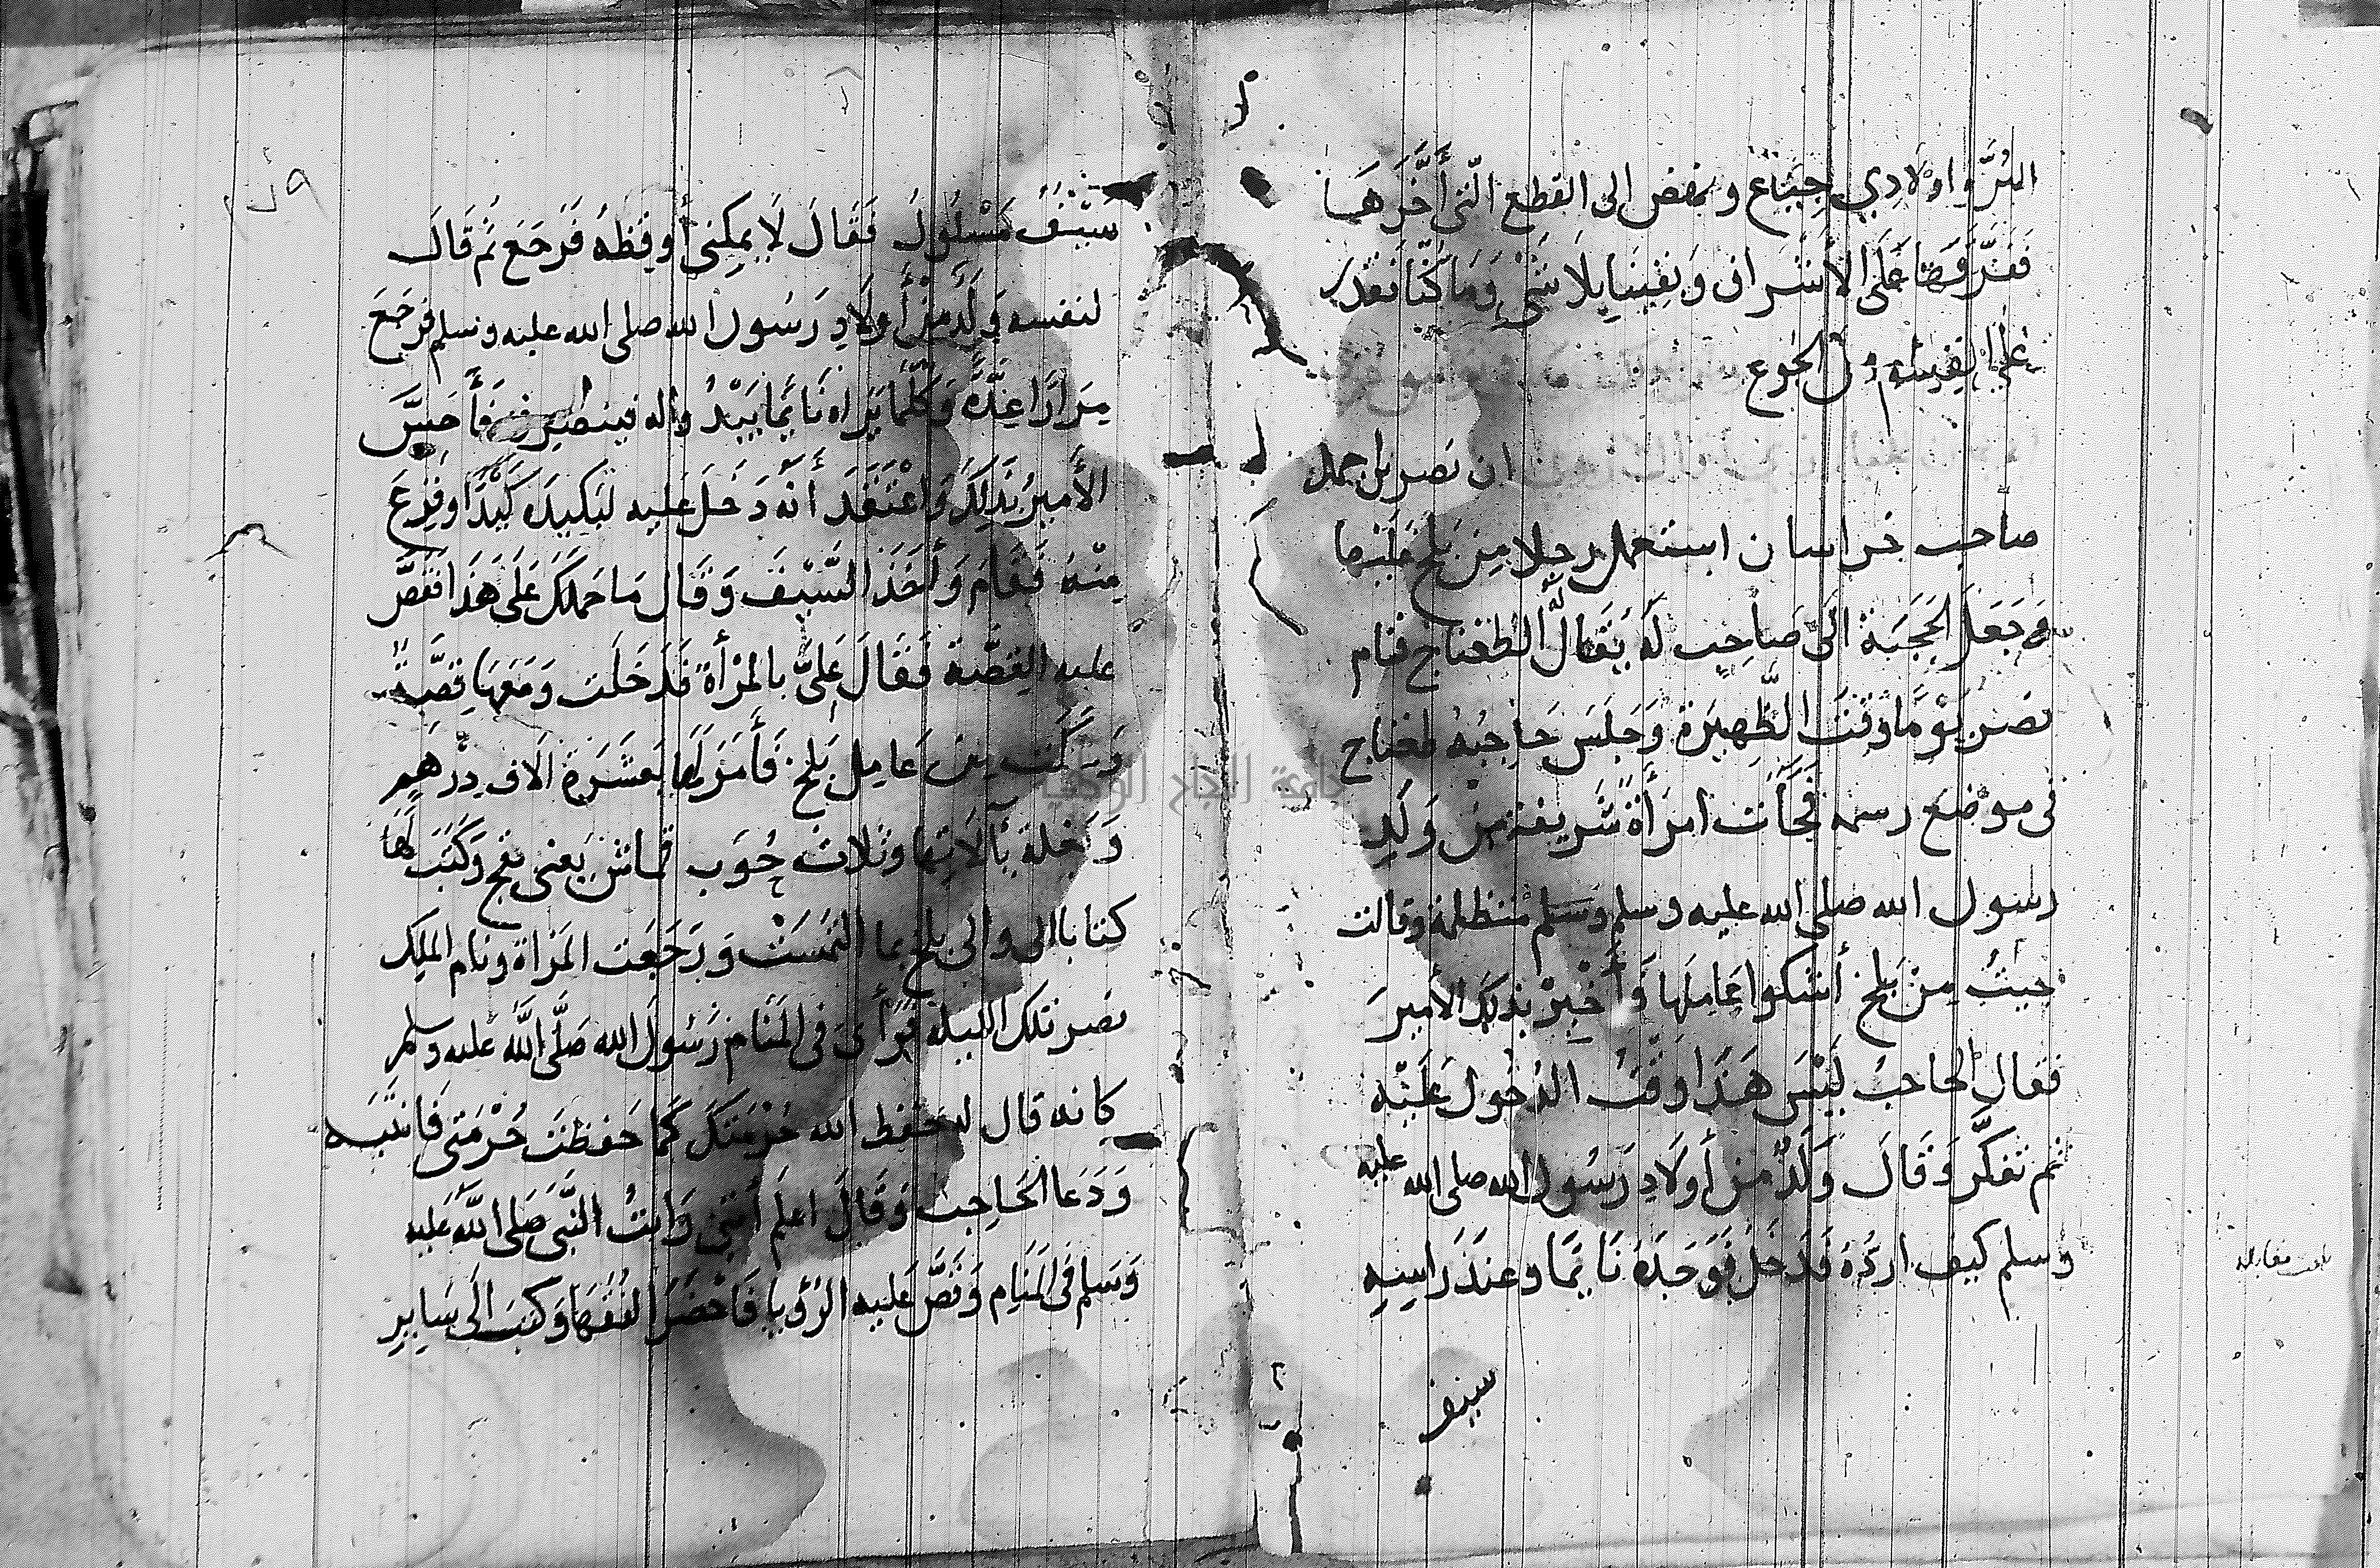 البُرَّ واولادي جِيَاع ونهض الى القطع الّتى أَخَّرَهَا
فَفَرَّقَهَا عَلَى الأَشْرَاف وَبَقِينَا بِلَا شَىْءٍ وَمَا كُنَّا نَقْدِر
على الجوع
ان نصر بن احمد
صاحب خراسان استعمل رجلا مِن بَلخ عَلَيها
وَجَعَلَ الحَجَبَة الَى صَاحِب لَه يُقَالُ الطغتاج فنام
نصر يَوْمًا وَقْتَ الظَّهِيرَة وَجَلَسَ حَاجِبُهُ طغتاج
فى موضع رسمه فَجَاءَت امرَأَةٌ شَريفة مِن وَلَدِ
رسول الله صلى الله عليه وسلم وسَلم متظلمة وقالت
جيتُ مِنْ بَلخ أشكوا عَامِلَها فَأَخْبِرْ بذلِكَ الأَميرَ
فقال الحاجبُ لَيْسَ هَذَا وَقْتُ الدُخُول عَلَيْه
ثم تفكَّرَ وَقَالَ وَلَدٌ مِن أولَادِ رَسُول الله صلى الله عليه
وسلم كيف اردُّهُ فَدَخَلَ فَوَجَدَهُ نَائمًا وعِندَ رَاسِهِ
سيف
بلغت مقابلة
سَيْفٌ مَسْلُولٌ فَقَالَ لَا يمكِننى أُوقِظهُ فَرَجَعَ ثُم قَالَ
لنفسه وَلَدٌ مِنْ أَولَادِ رَسُول الله صلى الله عليه وسلم فرجَعَ
مِرَارًا عِدَّةً وَكُلَّمَا يَرَاهُ نَائِمًا يَبْدُ واله فينصَرِف فَأَحَسَّ
الأَميرُ بَذلِكَ وَاعْتَقَدَ أنّه دَخَلَ عَليه ليَكِيدَه كَيْدًا وَفزِعَ
مِنْهُ فَقَامَ وَأَخَذَ السَّيْفَ وَقَال مَا حَملكَ عَلَى هَذَا فَقَصَّ
عليه القِصَّة فَقَالَ عَلَىَّ بالمَرْأَة فَدَخَلَت وَمَعَهَا قِصَّةٌ
عَامِل بَلخ فَأَمَرَ لَهَا بعَشَرَة الَاف دِرْهَمٍ
بآلَاتِها وثلَاث قماش يَعنى بقج وَكَتَبَ لَهَا
كتابا الى والى بلخ بما التَمَسَتْ وَرَجَعَت المَرْاة ونام الملِك
نصر تلك الليلة فَرَأَى فى المَنَام رَسُولَ الله صَلَّى اللَّهُ عليه وسلم
كانه قال له حَفِظ الله حُرْمَتَكَ كَمَا حَفظتَ حُرْمَتى فَانتَبَه
وَدَعَا الحَاجِب وَقَالَ اعلَم أنّنى رَايتُ النَّبى صَلى اللَّهُ عَليه
وَسَلم فى المَنَام وَقَصَّ عَليه الرُؤيا فَاحْضَرَ الفُقَهَا وَكتبَ الَى سَايِر
جامعة النجاح الوطنية